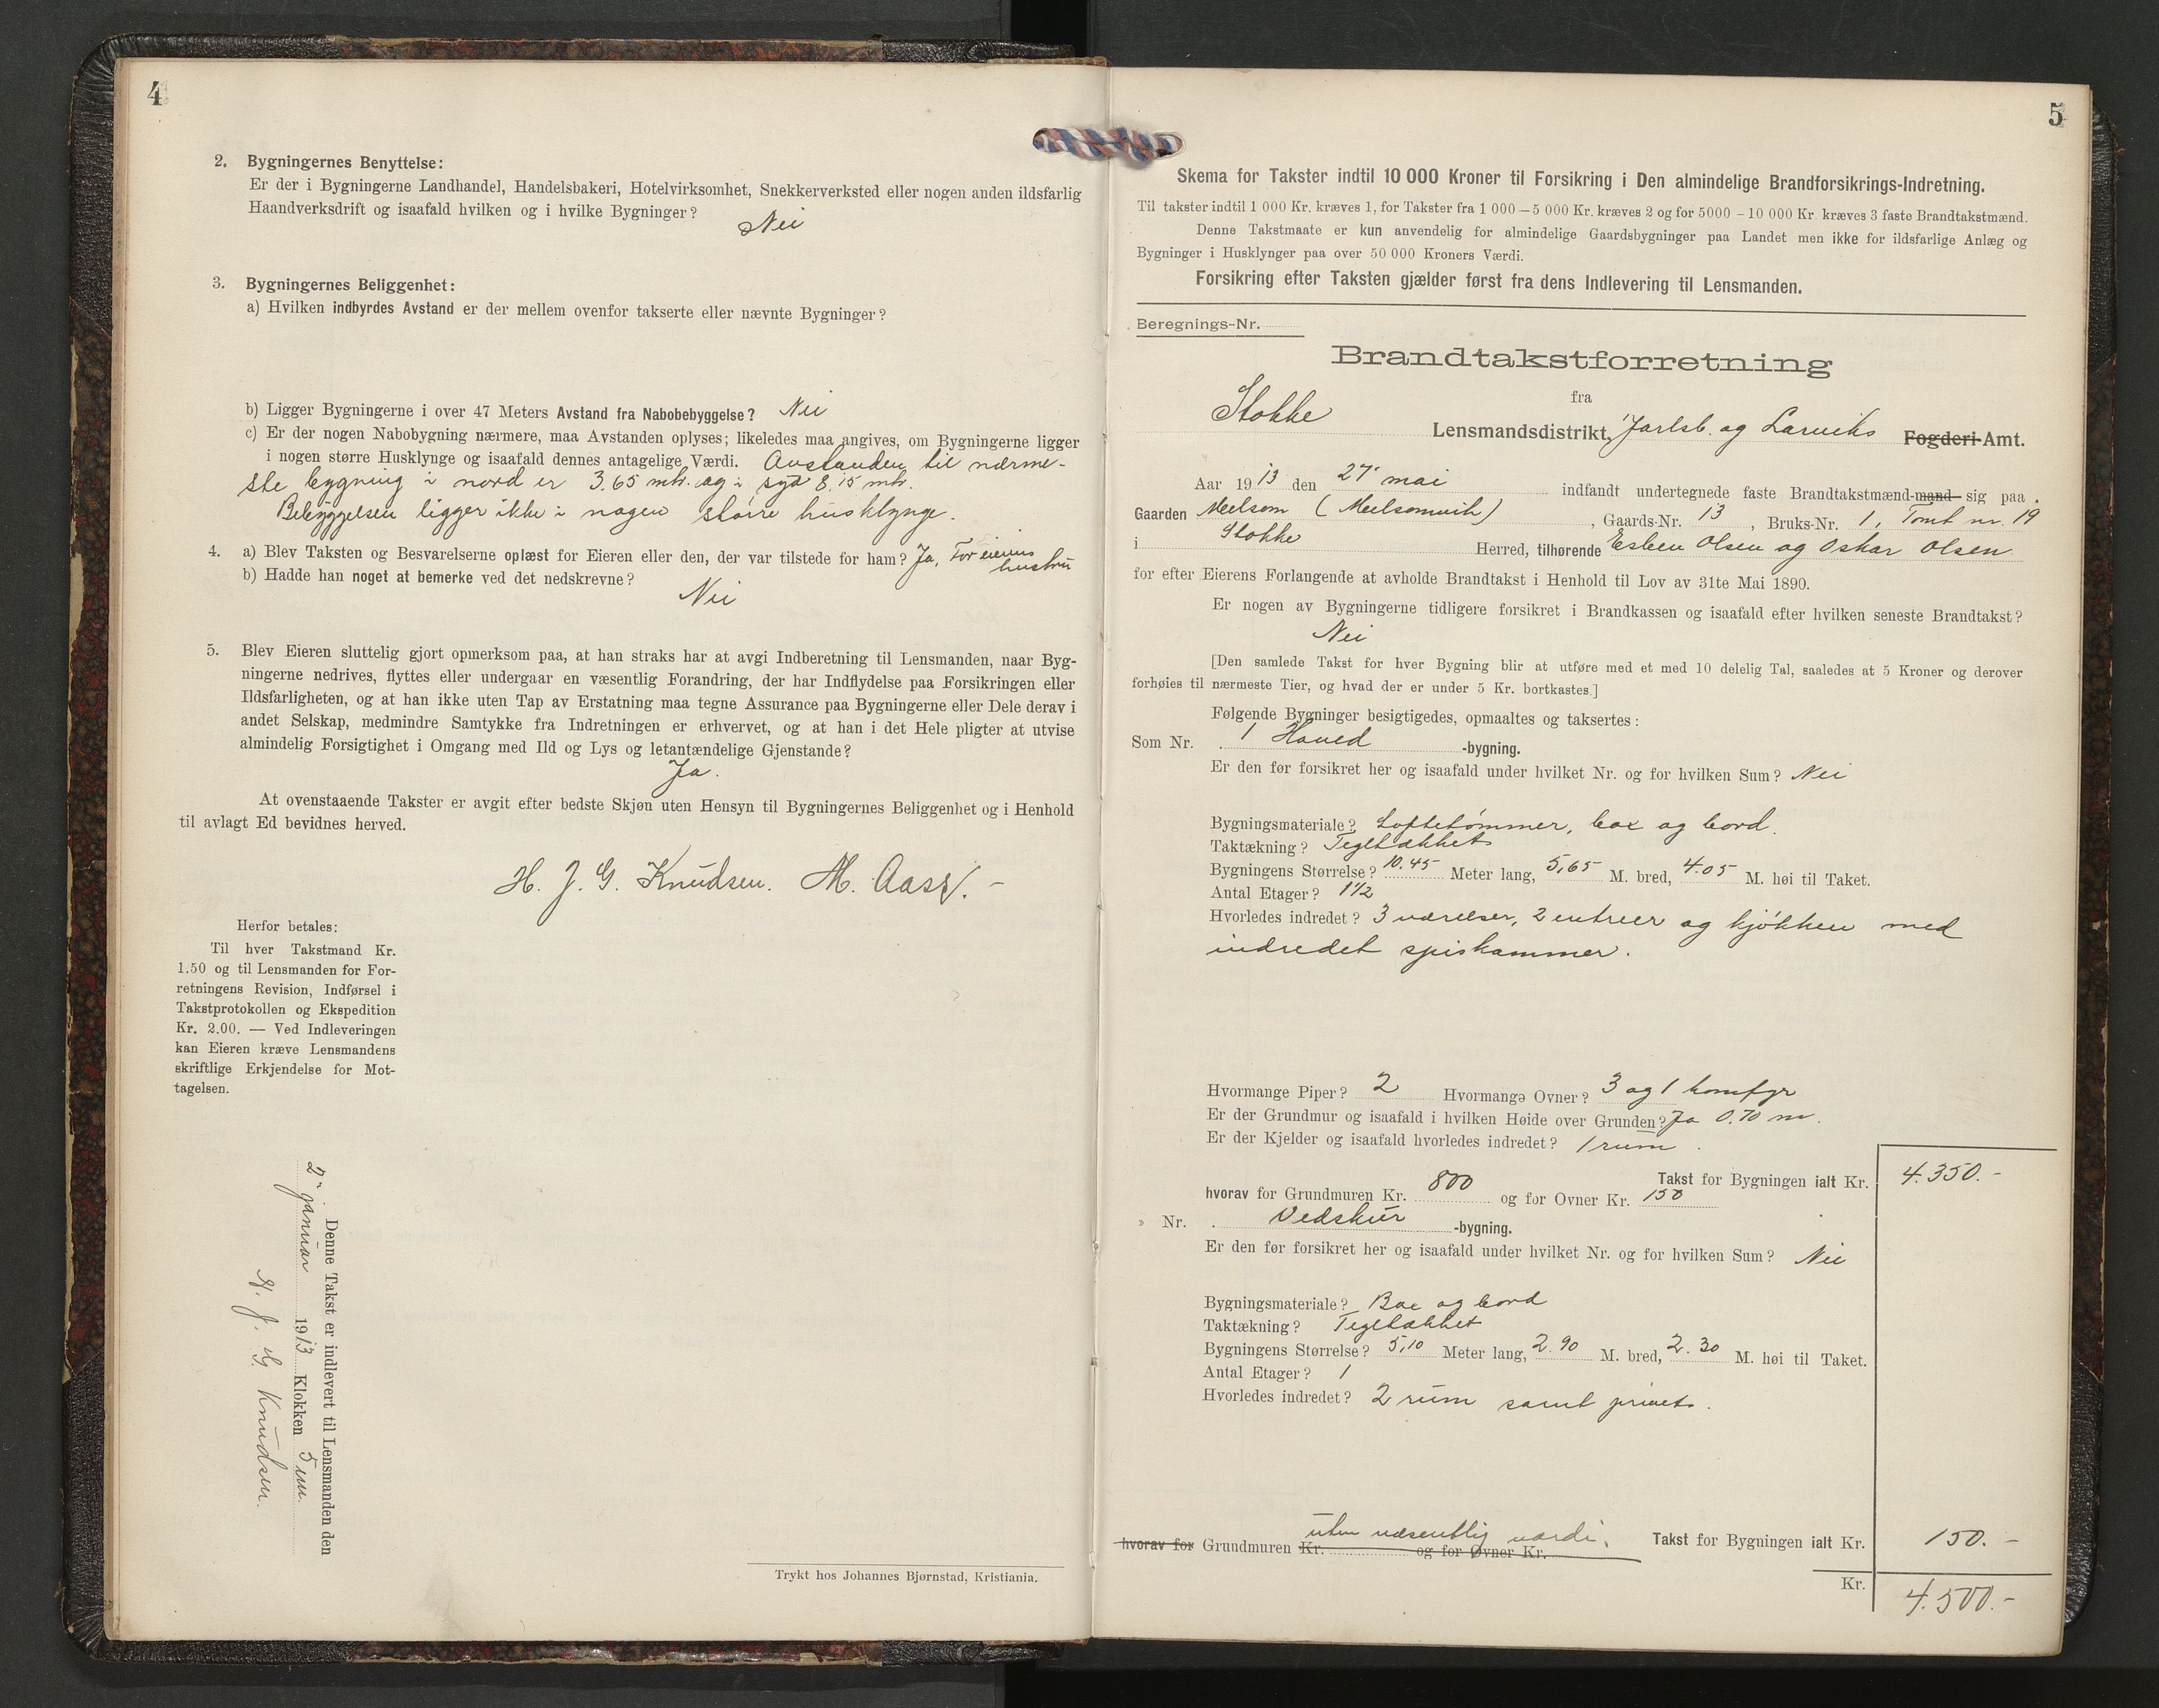 4
2. Bygningernes Benyttelse:
Er der i Bygningerne Landhandel, Handelsbakeri, Hotelvirksomhet, Snekkerverksted eller nogen anden ildsfarlig
Haandverksdrift og isaafald hvilken og i hvilke Bygninger?
Nei
3. Bygningernes Beliggenhet:
a) Hvilken indbyrdes Avstand er der mellem ovenfor takserte eller nævnte Bygninger?
b) Ligger Bygningerne i over 47 Meters Avstand fra Nabobebyggelse? Nei
c) Er der nogen Nabobygning nærmere, maa Avstanden oplyses; likeledes maa angives, om Bygningerne ligger
i nogen større Husklynge og isaafald dennes antagelige Værdi. Avstanden til nærme-
ste bygning i nord er 3.65 mtr. og i syd 8.15 mtr.
Bebyggelsen ligger ikke i nogen större husklynge.
4. a) Blev Taksten og Besvarelserne oplæst for Eieren eller den, der var tilstede for ham? Ja, For eierens
hustru
b) Hadde han noget at bemerke ved det nedskrevne?
Nei
5. Blev Eieren sluttelig gjort opmerksom paa, at han straks har at avgi Indberetning til Lensmanden, naar Byg-
ningerne nedrives, flyttes eller undergaar en væsentlig Forandring, der har Indflydelse paa Forsikringen eller
Ildsfarligheten, og at han ikke uten Tap av Erstatning maa tegne Assurance paa Bygningerne eller Dele derav i
andet Selskap, medmindre Samtykke fra Indretningen er erhvervet, og at han i det Hele pligter at utvise
almindelig Forsigtighet i Omgang med Ild og Lys og letantændelige Gjenstande?
Ja.
At ovenstaaende Takster er avgit efter bedste Skjøn uten Hensyn til Bygningernes Beliggenhet og i Henhold
til avlagt Ed bevidnes herved.
H. J. G. Knudsen. M.
Herfor betales:
Til hver Takstmand Kr.
1.50 og til Lensmanden for For-
retningens Revision, Indførsel i
Takstprotokollen og Ekspedition
Kr. 2.00. — Ved Indleveringen
kan Eieren kræve Lensmandens
skriftlige Erkjendelse for Mot-
tagelsen.
Denne Takst er indlevert til Lensmanden den
2. januar 1913 Klokken 5 em.
H. J. G. Knudsen.
Trykt hos Johannes Bjørnstad, Kristiania.
5
Skema for Takster indtil 10 000 Kroner til Forsikring i Den almindelige Brandforsikrings-Indretning.
Til takster indtil 1 000 Kr. kræves 1, for Takster fra 1 000 – 5 000 Kr. kræves 2 og for 5000 – 10 000 Kr. kræves 3 faste Brandtakstmænd.
Denne Takstmaate er kun anvendelig for almindelige Gaardsbygninger paa Landet men ikke for ildsfarlige Anlæg og
Bygninger i Husklynger paa over 50 000 Kroners Værdi.
Forsikring efter Taksten gjælder først fra dens Indlevering til Lensmanden.
Beregnings-Nr.
Brandtakstforretning
fra
Stokke Lensmandsdistrikt, Jarlsb. og Larviks Fogderi-Amt.
Aar 1913 den 27' mai indfandt undertegnede faste Brandtakstmænd-mand sig paa
Gaarden Melsom (Melsomvik), Gaards-Nr. 13, Bruks-Nr. 1, Tomt nr. 19
i Stokke Herred, tilhørende Esben Olsen og Oskar Olsen
for efter Eierens Forlangende at avholde Brandtakst i Henhold til Lov av 31te Mai 1890.
Er nogen av Bygningerne tidligere forsikret i Brandkassen og isaafald efter hvilken seneste Brandtakst?
Nei
[Den samlede Takst for hver Bygning blir at utføre med et med 10 delelig Tal, saaledes at 5 Kroner og derover
forhøies til nærmeste Tier, og hvad der er under 5 Kr. bortkastes.]
Følgende Bygninger besigtigedes, opmaaltes og taksertes:
Som Nr. 1 Hoved -bygning.
Er den før forsikret her og isaafald under hvilket Nr. og for hvilken Sum? Nei
Bygningsmateriale? Loftetömmer, box og bord.
Taktækning? Tegltækket
Bygningens Størrelse? 10.45 Meter lang, 5,65 M. bred, 4.05 M. høi til Taket.
Antal Etager? 1½
Hvorledes indredet? 3 værelser, 2 entreer og kjökken med
indredet spiskammer.
Hvormange Piper? 2 Hvormange Ovner? 3 og 1 komfyr
Er der Grundmur og isaafald i hvilken Høide over Grunden? Ja 0.70 m.
Er der Kjelder og isaafald hvorledes indredet? 1 rum.
Takst for Bygningen ialt Kr. 4.350.-
hvorav for Grundmuren Kr. 800 og for Ovner Kr. 150
» Nr. Vedskur -bygning.
Er den før forsikret her og isaafald under hvilket Nr. og for hvilken Sum? Nei
Bygningsmateriale? Box og bord
Taktækning? Tegltækket
Bygningens Størrelse? 5,10 Meter lang, 2.90 M. bred, 2.30 M. høi til Taket.
Antal Etager? 1
Hvorledes indredet? 2 rum samt privet.
uten væsentlig værdi.
hvorav for Grundmuren Kr. og for Ovner Kr. Takst for Bygningen ialt Kr. 150.-
Kr. 4.500.-